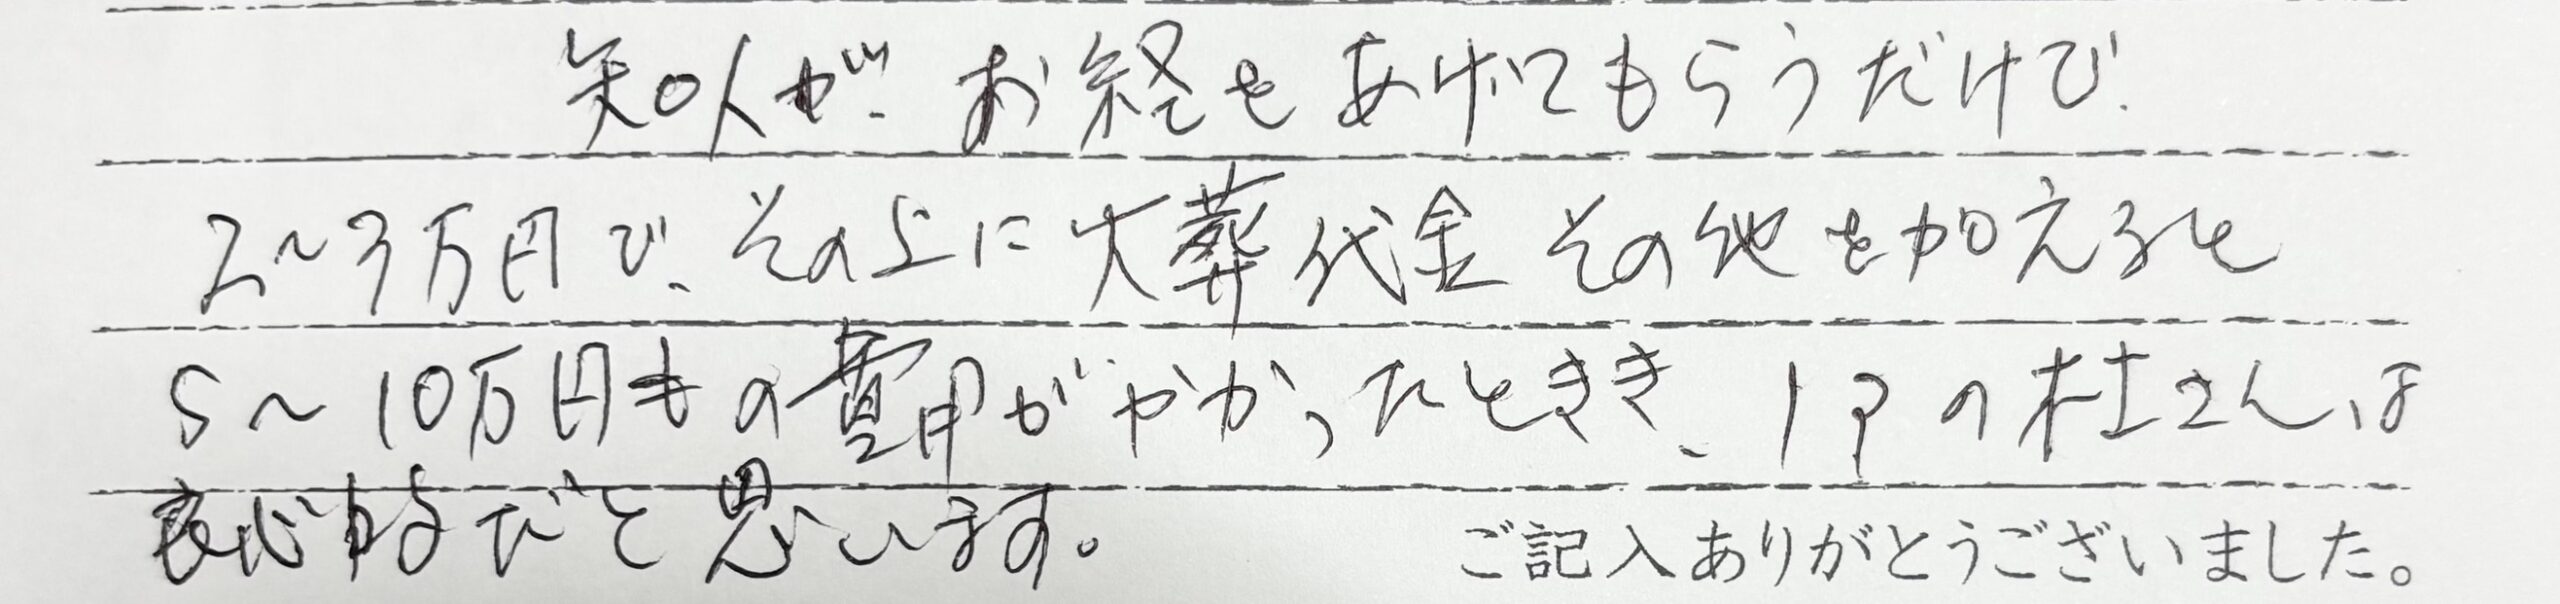 知人が、お経をあげてもらうだけで、
2～3万円で、その上に火葬代金その他を加えると
5～10万円もの費用がかかったとき、の杜さんは
良心的だと思います。
ご記入ありがとうございました。